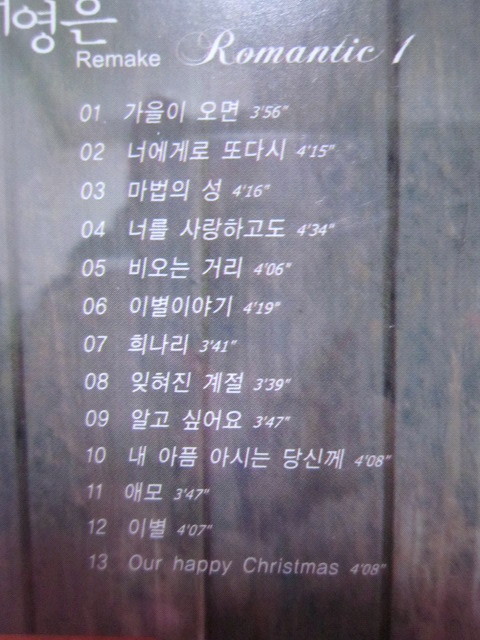 영은
Remake Romantic 1
01 가을이 오면 3'56"
02 너에게로 또다시 4'15"
03 마법의 성 4'16"
04 너를 사랑하고도 4'34"
05 비오는 거리 4'06"
06 이별이야기 4'19"
07 희나리 3'41"
08 잊혀진 계절 3'39"
09 알고 싶어요 3'47"
10 내 아픔 아시는 당신께 4'08"
11 애모 3'47"
12 이별 4'07"
13 Our happy Christmas 4'08"